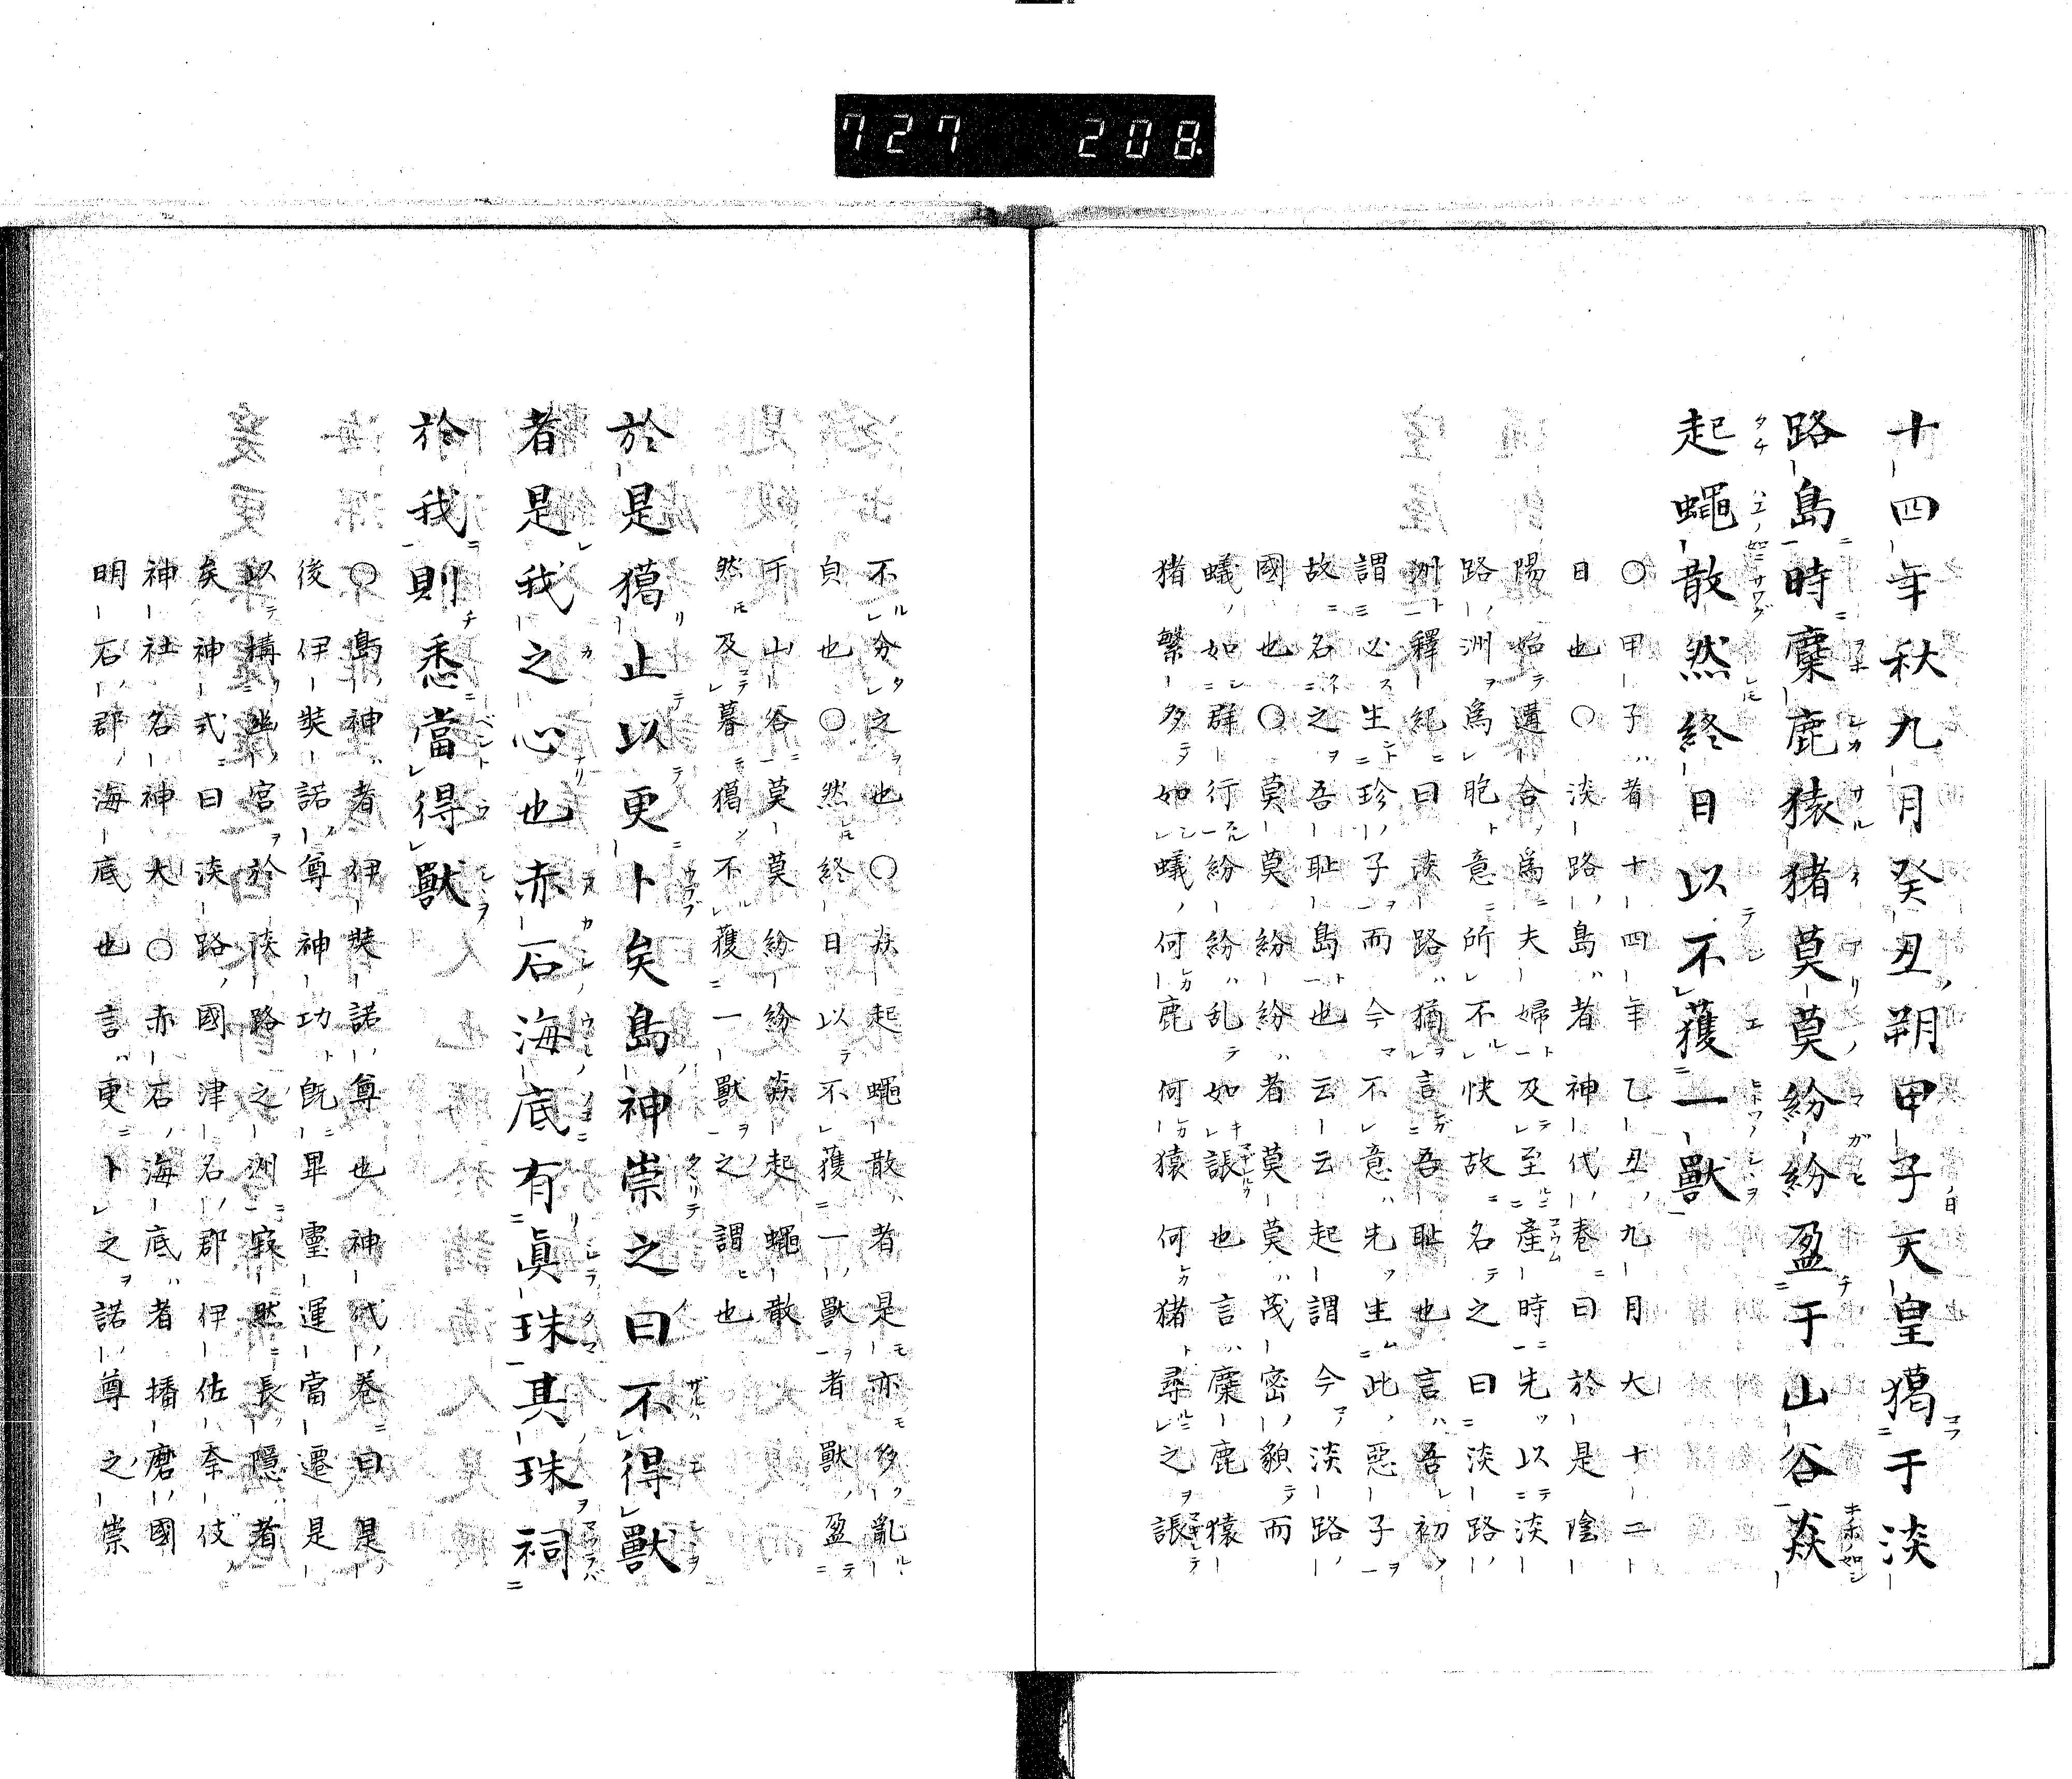 727 208
十四年秋九月癸丑朔甲子天皇獦于淡
路島時麋鹿猿猪莫莫紛紛盈于山谷焱
起蠅散然終日以不獲一獸
〇甲子者十四年乙丑九月大十二
日也〇淡路島者神代巻曰於是陰
陽始遘合為夫婦及至産時先以淡
路洲為胞意所不快故名之曰淡路
洲釋紀曰淡路猶言吾耻也言吾初
謂必生珍子而今不意先生此惡子
故名之吾耻島也云云起謂今淡路
國也〇莫莫紛紛者莫莫茂密貌而
蟻如群行紛紛乱如誫也言麋鹿猿
猪繁多如蟻何鹿何猿何猪尋之誫
不分之也〇焱起蠅散者是亦多亂
貞也〇然終日以不獲一獸者獸盈
于山谷莫莫紛紛焱起蠅散
然及暮獦不獲一獸之謂也
於是獦止以更卜矣島神祟之曰不得獸
者是我之心也赤石海底有眞珠其珠祠
於我則悉當得獸
〇島神者伊奘諾尊也神代巻曰是
後伊奘諾尊神功既畢靈運當遷是
以構幽宮於淡路之洲寂然長隱者
矣神式曰淡路國津名郡伊佐奈伎
神社名神大〇赤石海底者播磨國
明石郡海底也言更卜之諾尊之祟